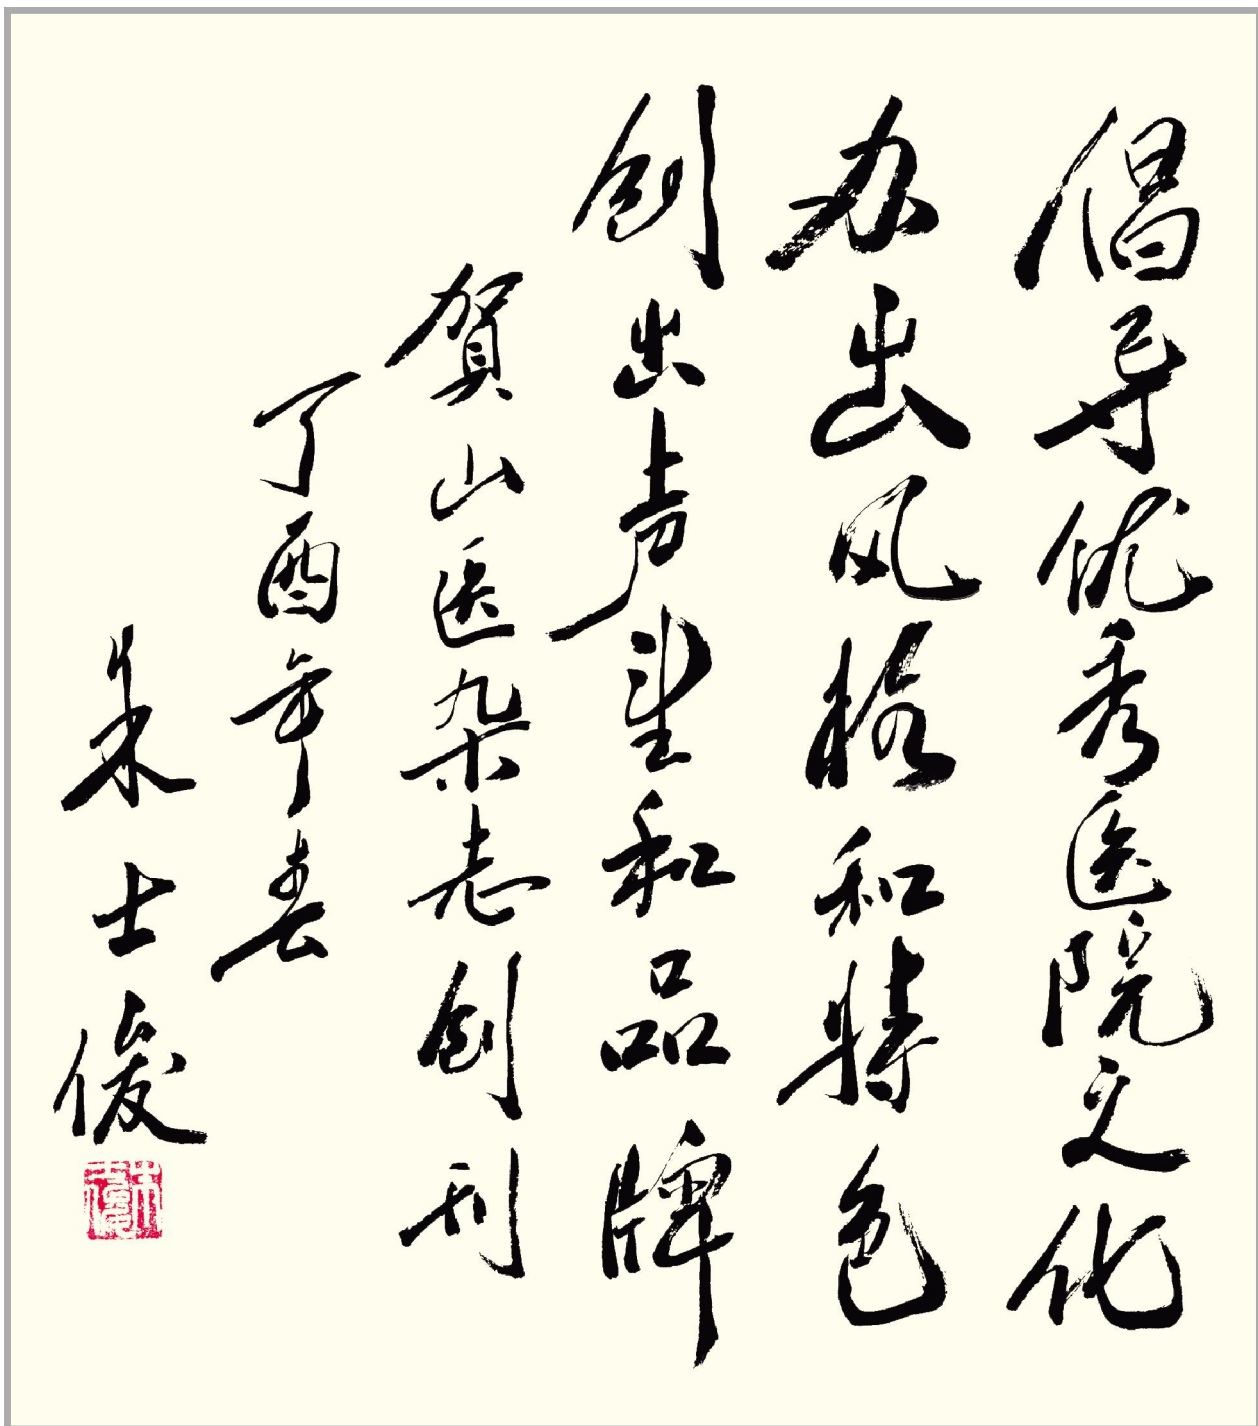 倡导优秀医院文化
办出风格和特色
创出声望和品牌
贺山医杂志创刊
丁酉年春
朱士俊